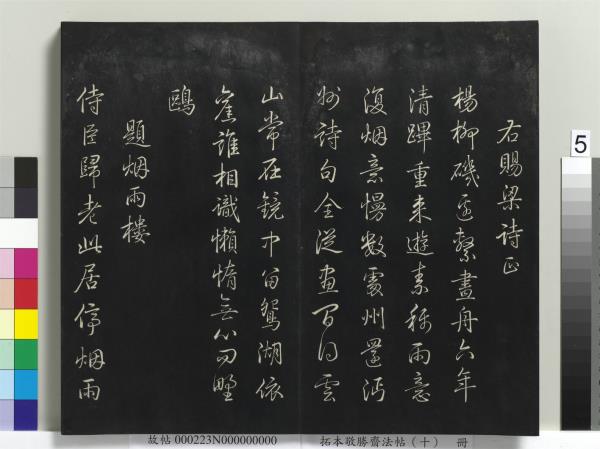 右賜梁詩正
楊柳磯邊繫畫舟六年
清蹕重來遊素稱雨意
復烟意慢數雲州還沔
州詩句全從畫間得雲
山常在鏡中留鴛湖依
舊誰相識懶惰無心問野
鷗
題烟雨樓
侍臣歸老此居停烟雨
5
故帖 000223N000000000 拓本敬勝齋法帖（十） 冊